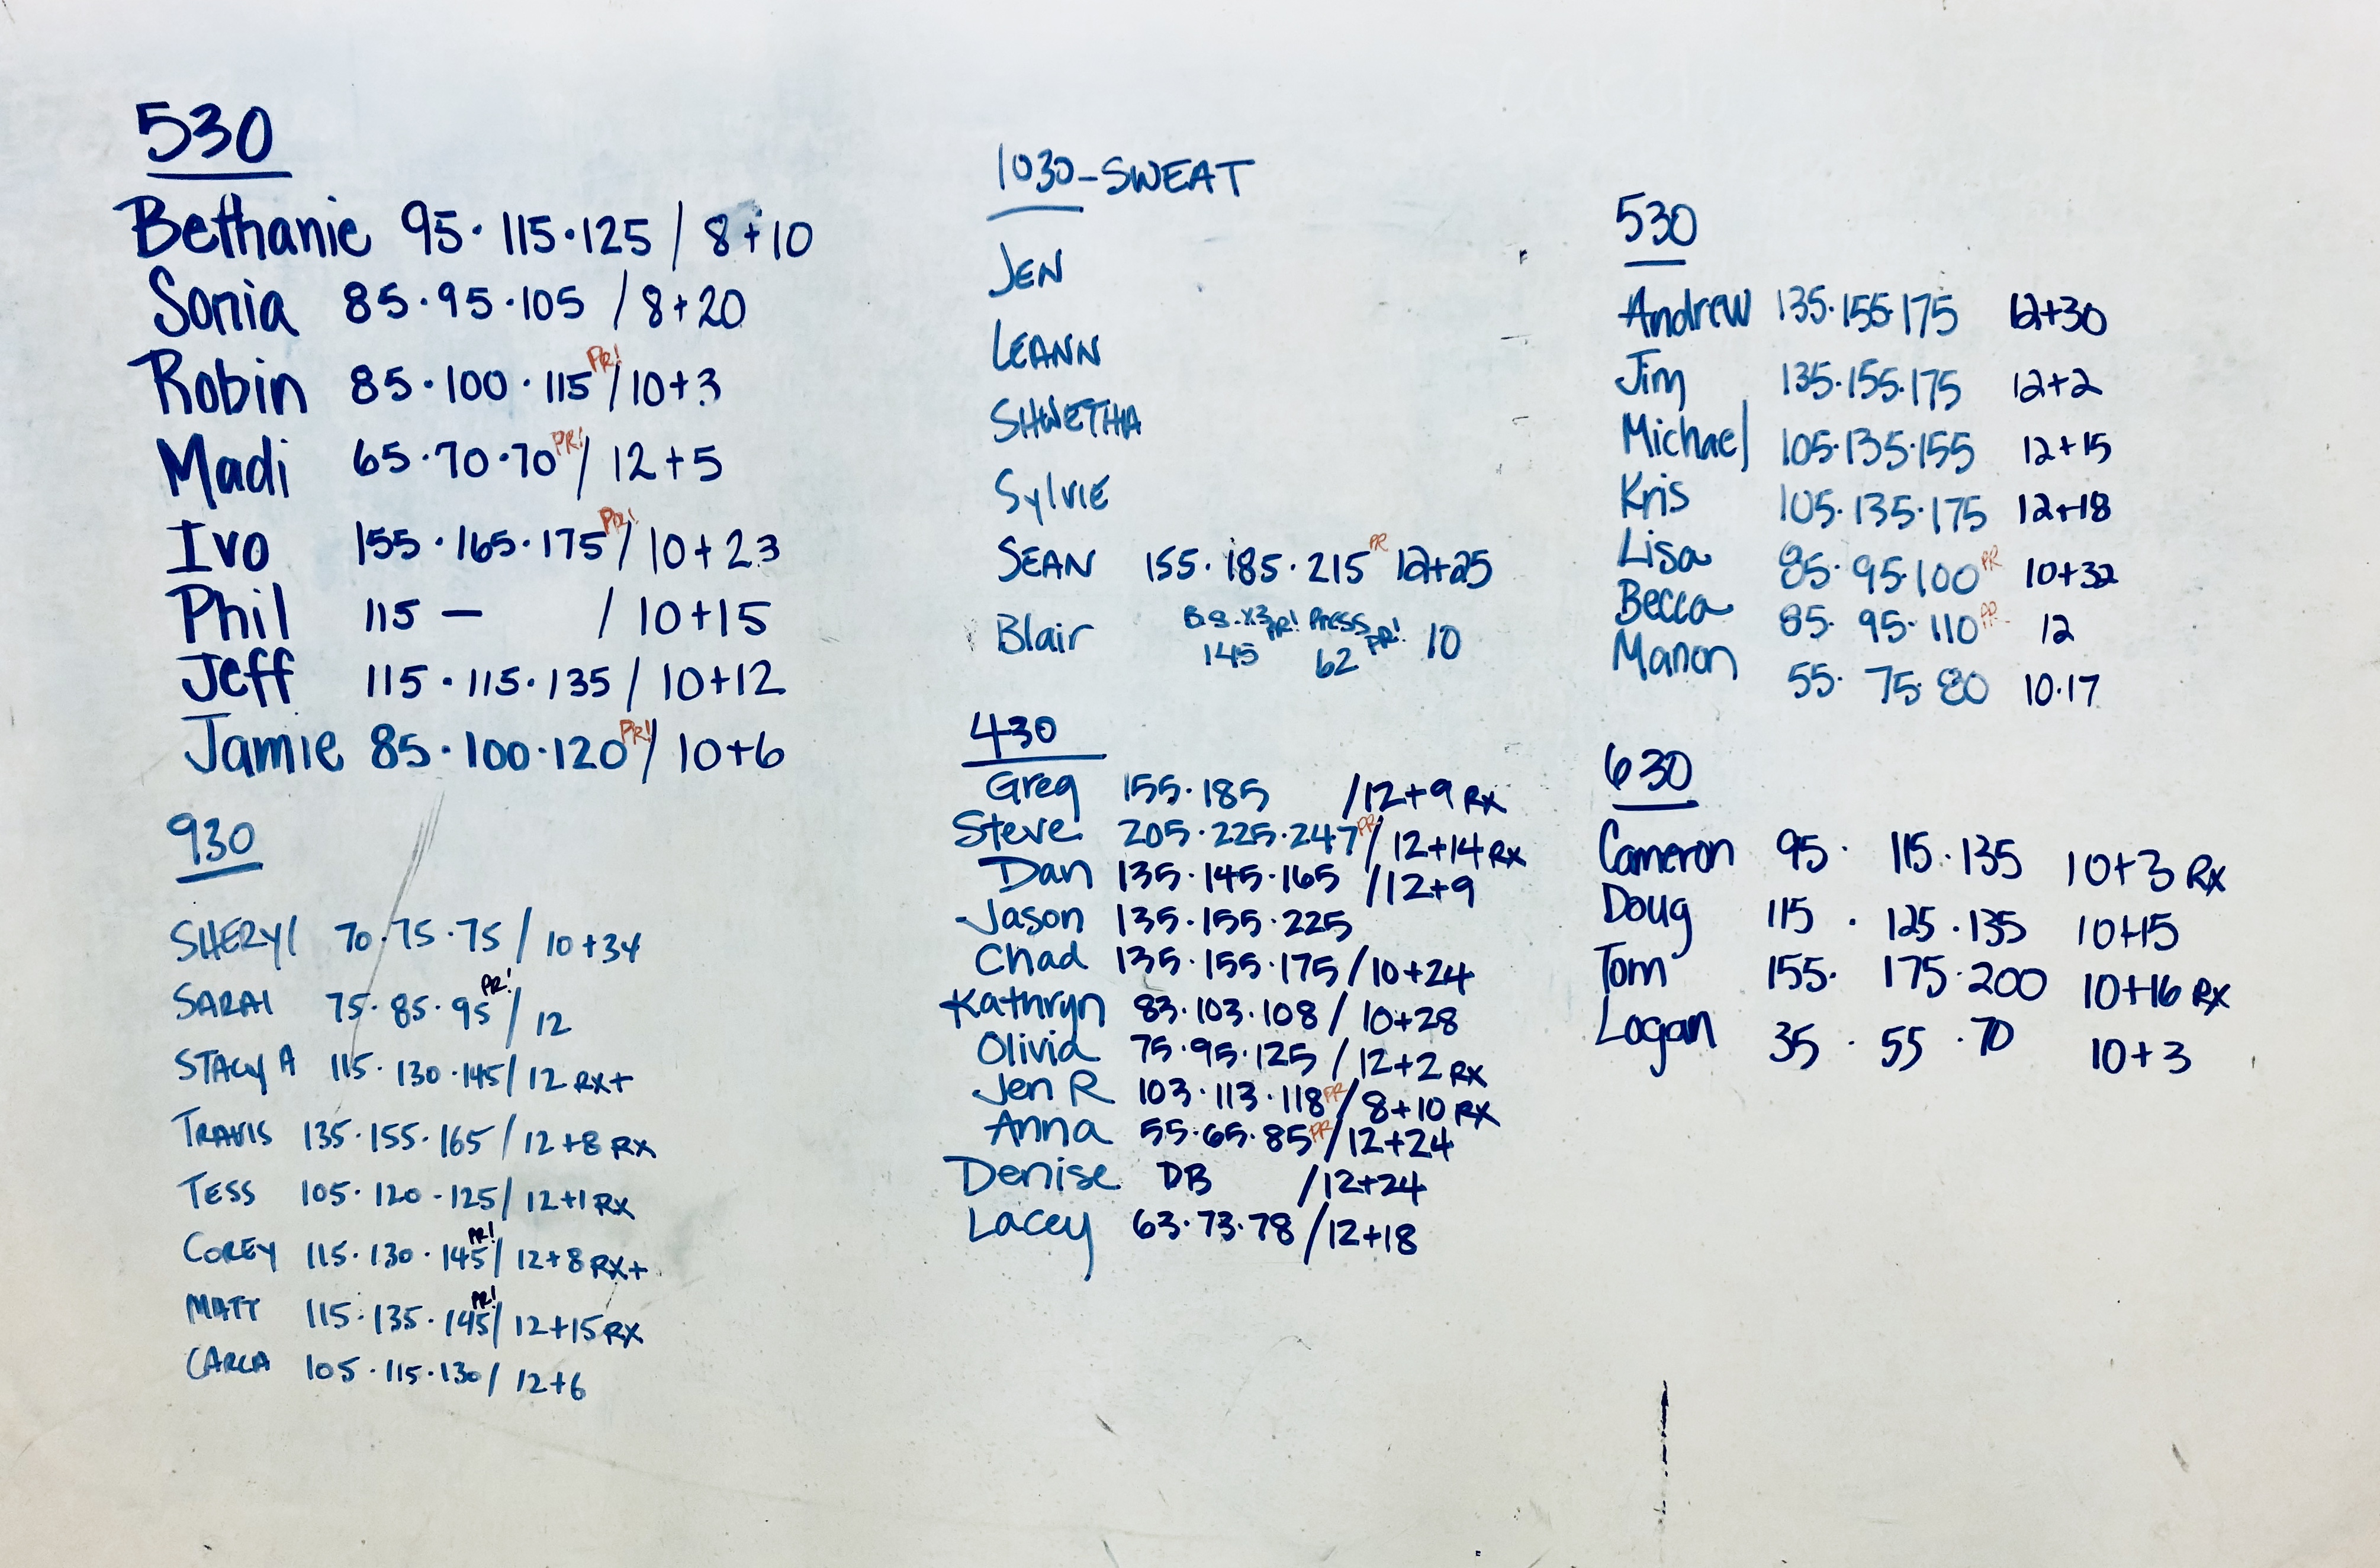 530
Bethanie 95·115·125 / 8+10
Sonia 85·95·105 / 8+20
Robin 85·100·115 PR! / 10+3
Madi 65·70·70 PR! / 12+5
Ivo 155·165·175 PR! / 10+23
Phil 115 — / 10+15
Jeff 115·115·135 / 10+12
Jamie 85·100·120 PR! / 10+6
930
SHERYL 70·75·75 / 10+34
SARAI 75·85·95 PR! / 12
STACY A 115·130·145 / 12 RX+
TRAVIS 135·155·165 / 12+8 RX
TESS 105·120-125 / 12+1 RX
COREY 115·130·145 PR! / 12+8 RX+
MATT 115·135·145 PR! / 12+15 RX
CARLA 105·115·130 / 12+6
1030-SWEAT
JEN
LEANN
SHWETHA
SylVIE
SEAN 155·185·215 PR 12+25
Blair B.S.X3 145 PR! PRESS 62 PR! 10
430
Greg 155·185 /12+9 RX
Steve 205·225·247 PR / 12+14 RX
Dan 135·145·165 /12+9
Jason 135·155·225
Chad 135·155·175 /10+24
Kathryn 83·103·108 / 10+28
Olivia 75·95·125 / 12+2 RX
Jen R 103·113·118 PR / 8+10 RX
Anna 55·65·85 PR /12+24
Denise DB /12+24
Lacey 63·73·78 /12+18
530
Andrew 135·155·175 12+30
Jim 135·155·175 12+2
Michael 105·135·155 12+15
Kris 105·135·175 12+18
Lisa 85·95·100 PR 10+32
Becca 85·95·110 PR 12
Manon 55·75·80 10·17
630
Cameron 95·115·135 10+3 RX
Doug 115·125·135 10+15
Tom 155·175·200 10+16 RX
Logan 35·55·70 10+3